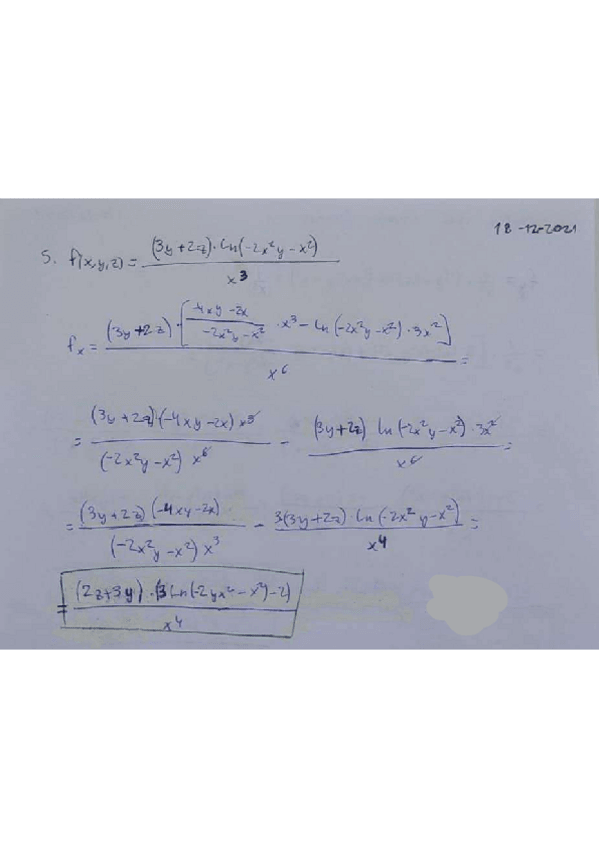 18-12-2021
5. f(x,y,z) = \frac{(3y+2z)·ln(-2x²y-x²)}{x³}
f_x = \frac{(3y+2z)·[\frac{-4xy-2x}{-2x²y-x²}·x³-ln(-2x²y-x²)·3x²]}{x⁶} =
= \frac{(3y+2z)·(-4xy-2x) x³}{(-2x²y-x²) x⁶} - \frac{(3y+2z) ln(-2x²y-x²)·3x²}{x⁶} =
= \frac{(3y+2z)(-4xy-2x)}{(-2x²y-x²) x³} - \frac{3(3y+2z)·ln(-2x²y-x²)}{x⁴} =
= \frac{(2z+3y)·(3 ln(-2yx²-x²)-2)}{x⁴}